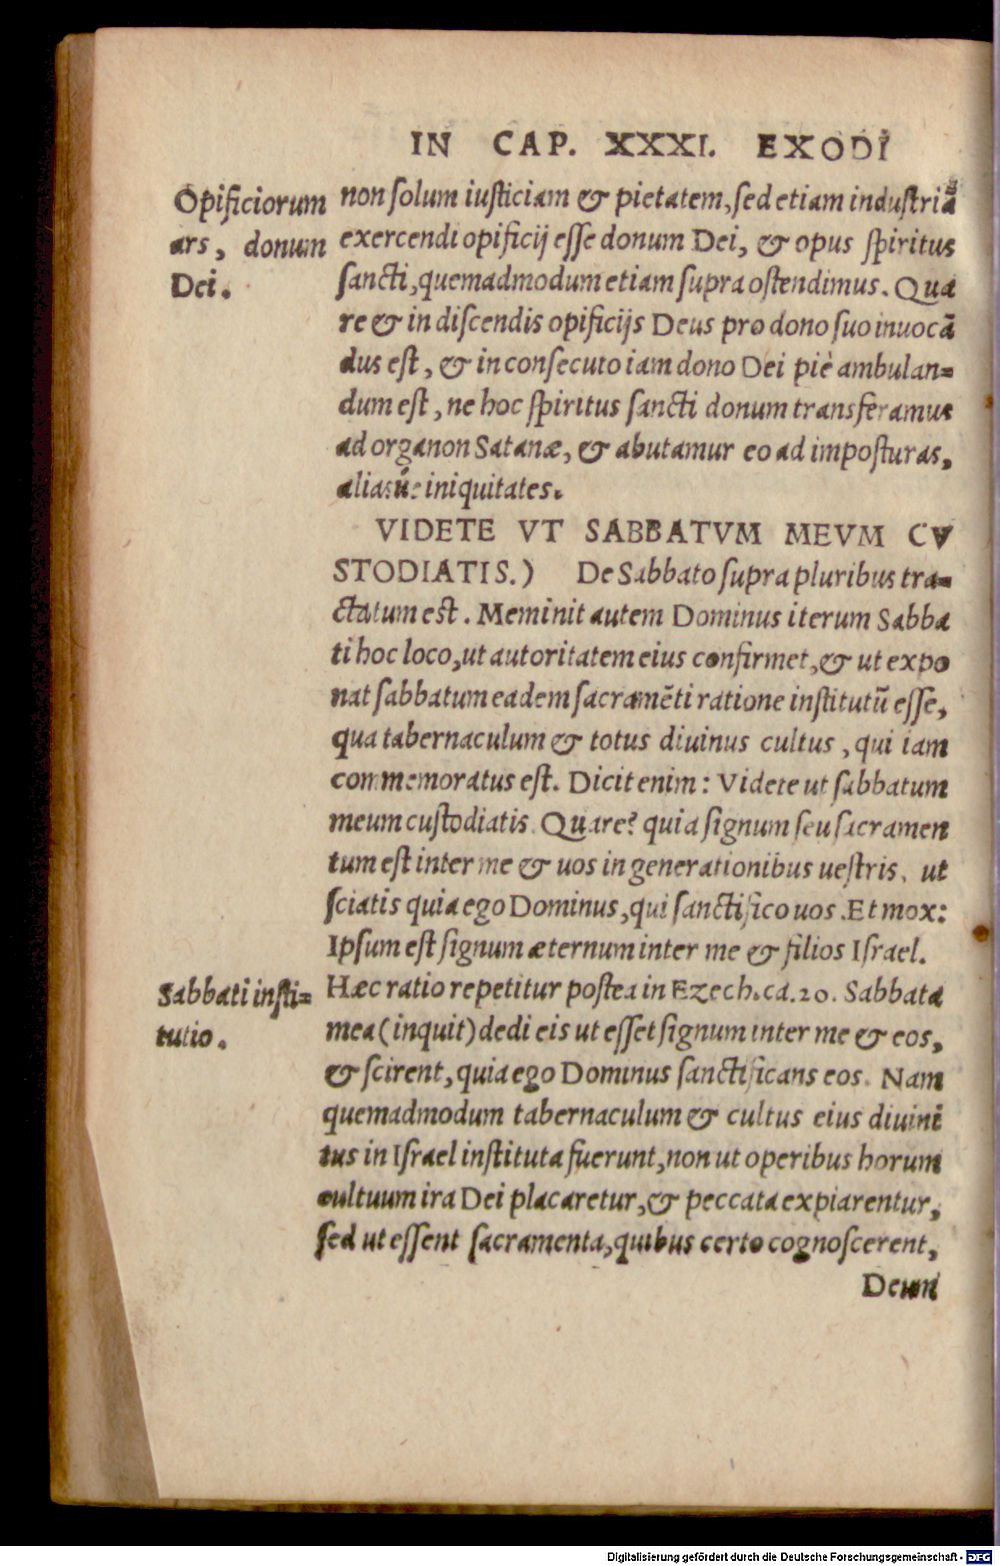 IN CAP. XXXI. EXODI
Opificiorum
ars, donum
Dei.
non ſolum iuſticiam & pietatem, ſed etiam induſtriā
exercendi opificij eſſe donum Dei, & opus ſpiritus
ſancti, quemadmodum etiam ſupra oſtendimus. Qua
re & in diſcendis opificijs Deus pro dono ſuo inuocā
dus eſt, & in conſecuto iam dono Dei piè ambulan=
dum eſt, ne hoc ſpiritus ſancti donum transferamus
ad organon Satanæ, & abutamur eo ad impoſturas,
aliasúe iniquitates.
VIDETE VT SABBATVM MEVM CV
STODIATIS.) De Sabbato ſupra pluribus tra=
ctatum est. Meminit autem Dominus iterum Sabba
ti hoc loco, ut autoritatem eius confirmet, & ut expo
nat ſabbatum eadem ſacramēti ratione inſtitutū eſſe,
qua tabernaculum & totus diuinus cultus, qui iam
commemoratus eſt. Dicit enim: Videte ut ſabbatum
meum cuſtodiatis. Quare? quia ſignum ſeu ſacramen
tum eſt inter me & uos in generationibus ueſtris, ut
ſciatis quia ego Dominus, qui ſanctifico uos. Et mox:
Ipſum eſt ſignum æternum inter me & filios Iſrael.
Sabbati inſti=
tutio.
Hæc ratio repetitur poſtea in Ezech. ca. 20. Sabbata
mea (inquit) dedi eis ut eſſet ſignum inter me & eos,
& ſcirent, quia ego Dominus ſanctificans eos. Nam
quemadmodum tabernaculum & cultus eius diuini
tus in Iſrael inſtituta fuerunt, non ut operibus horum
cultuum ira Dei placaretur, & peccata expiarentur,
ſed ut eſſent ſacramenta, quibus certo cognoſcerent,
Deum
Digitalisierung gefördert durch die Deutsche Forschungsgemeinschaft - DFG